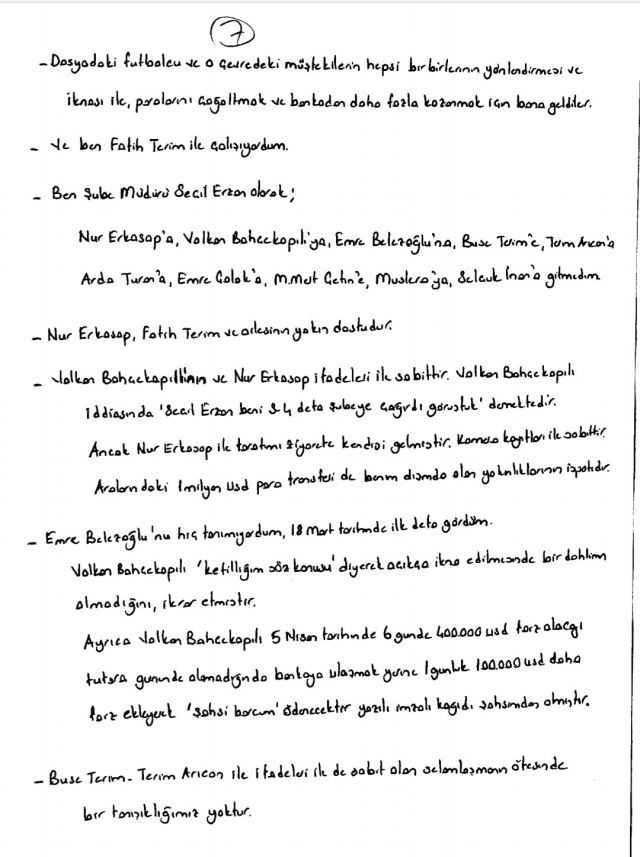 7
- Dosyadaki futbolcu ve o çevredeki müştekilerin hepsi birbirlerinin yönlendirmesi ve
iknası ile, paralarını çoğaltmak ve bankadan daha fazla kazanmak için bana geldiler.
- Ve ben Fatih Terim ile çalışıyordum.
- Ben Şube Müdürü Seçil Erzan olarak;
Nur Erkasap'a, Volkan Bahçekapılı'ya, Emre Belezoğlu'na, Buse Terim'e, Terim Arıcan'a
Arda Turan'a, Emre Çolak'a, M.Mert Çetin'e, Muslera'ya, Selçuk İnan'a gitmedim
- Nur Erkasap, Fatih Terim ve ailesinin yakın dostudur.
- Volkan Bahçekapılı'nın ve Nur Erkasap ifadeleri ile sabittir. Volkan Bahçekapılı
iddiasında 'Seçil Erzan beni 3-4 defa şubeye çağırdı görüştük' demektedir.
Ancak Nur Erkasap ile tarafımı ziyarete kendisi gelmiştir. Kamera kayıtları ile sabittir.
Aralarındaki 1 milyon usd para transferi de benim dışımda olan yakınlıklarının ispatıdır.
- Emre Belezoğlu'nu hiç tanımıyordum, 18 Mart tarihinde ilk defa gördüm.
Volkan Bahçekapılı 'kefilliğim söz konusu' diyerek açıkça ikna edilmesinde bir dahlim
olmadığını, ikrar etmiştir.
Ayrıca Volkan Bahçekapılı 5 Nisan tarihinde 6 günde 400.000 usd faiz olacağı
tutarı gününde alamadığında bankaya ulaşmak yerine 1 günlük 100.000 usd daha
faiz ekleyerek 'şahsi borcum' ödenecektir yazılı imzalı kağıdı şahsımdan almıştır.
- Buse Terim - Terim Arıcan ile ifadeleri ile de sabit olan selamlaşmanın ötesinde
bir tanışıklığımız yoktur.